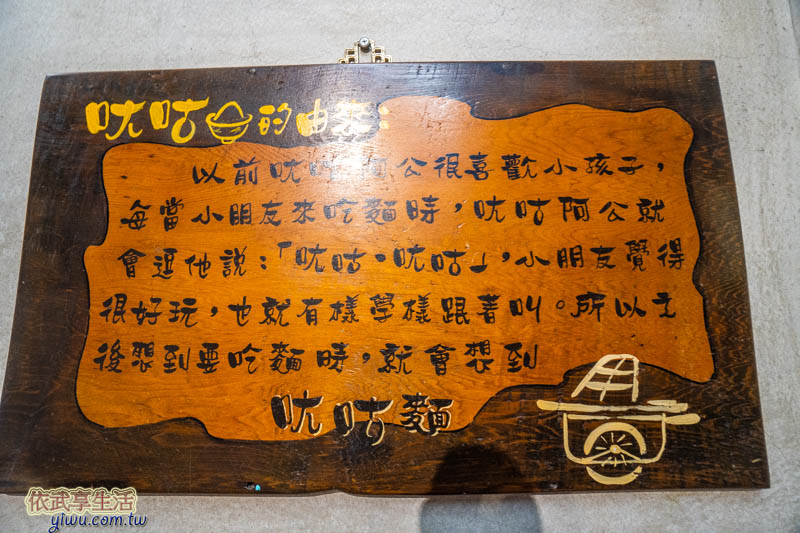 呒咕的由來:
以前呒咕阿公很喜歡小孩子,
每當小朋友來吃麵時,呒咕阿公就
會逗他說:「呒咕、呒咕」,小朋友覺得
很好玩,也就有樣學樣跟著叫。所以之
後想到要吃麵時,就會想到
呒咕麵
依武享生活
yiwu.com.tw